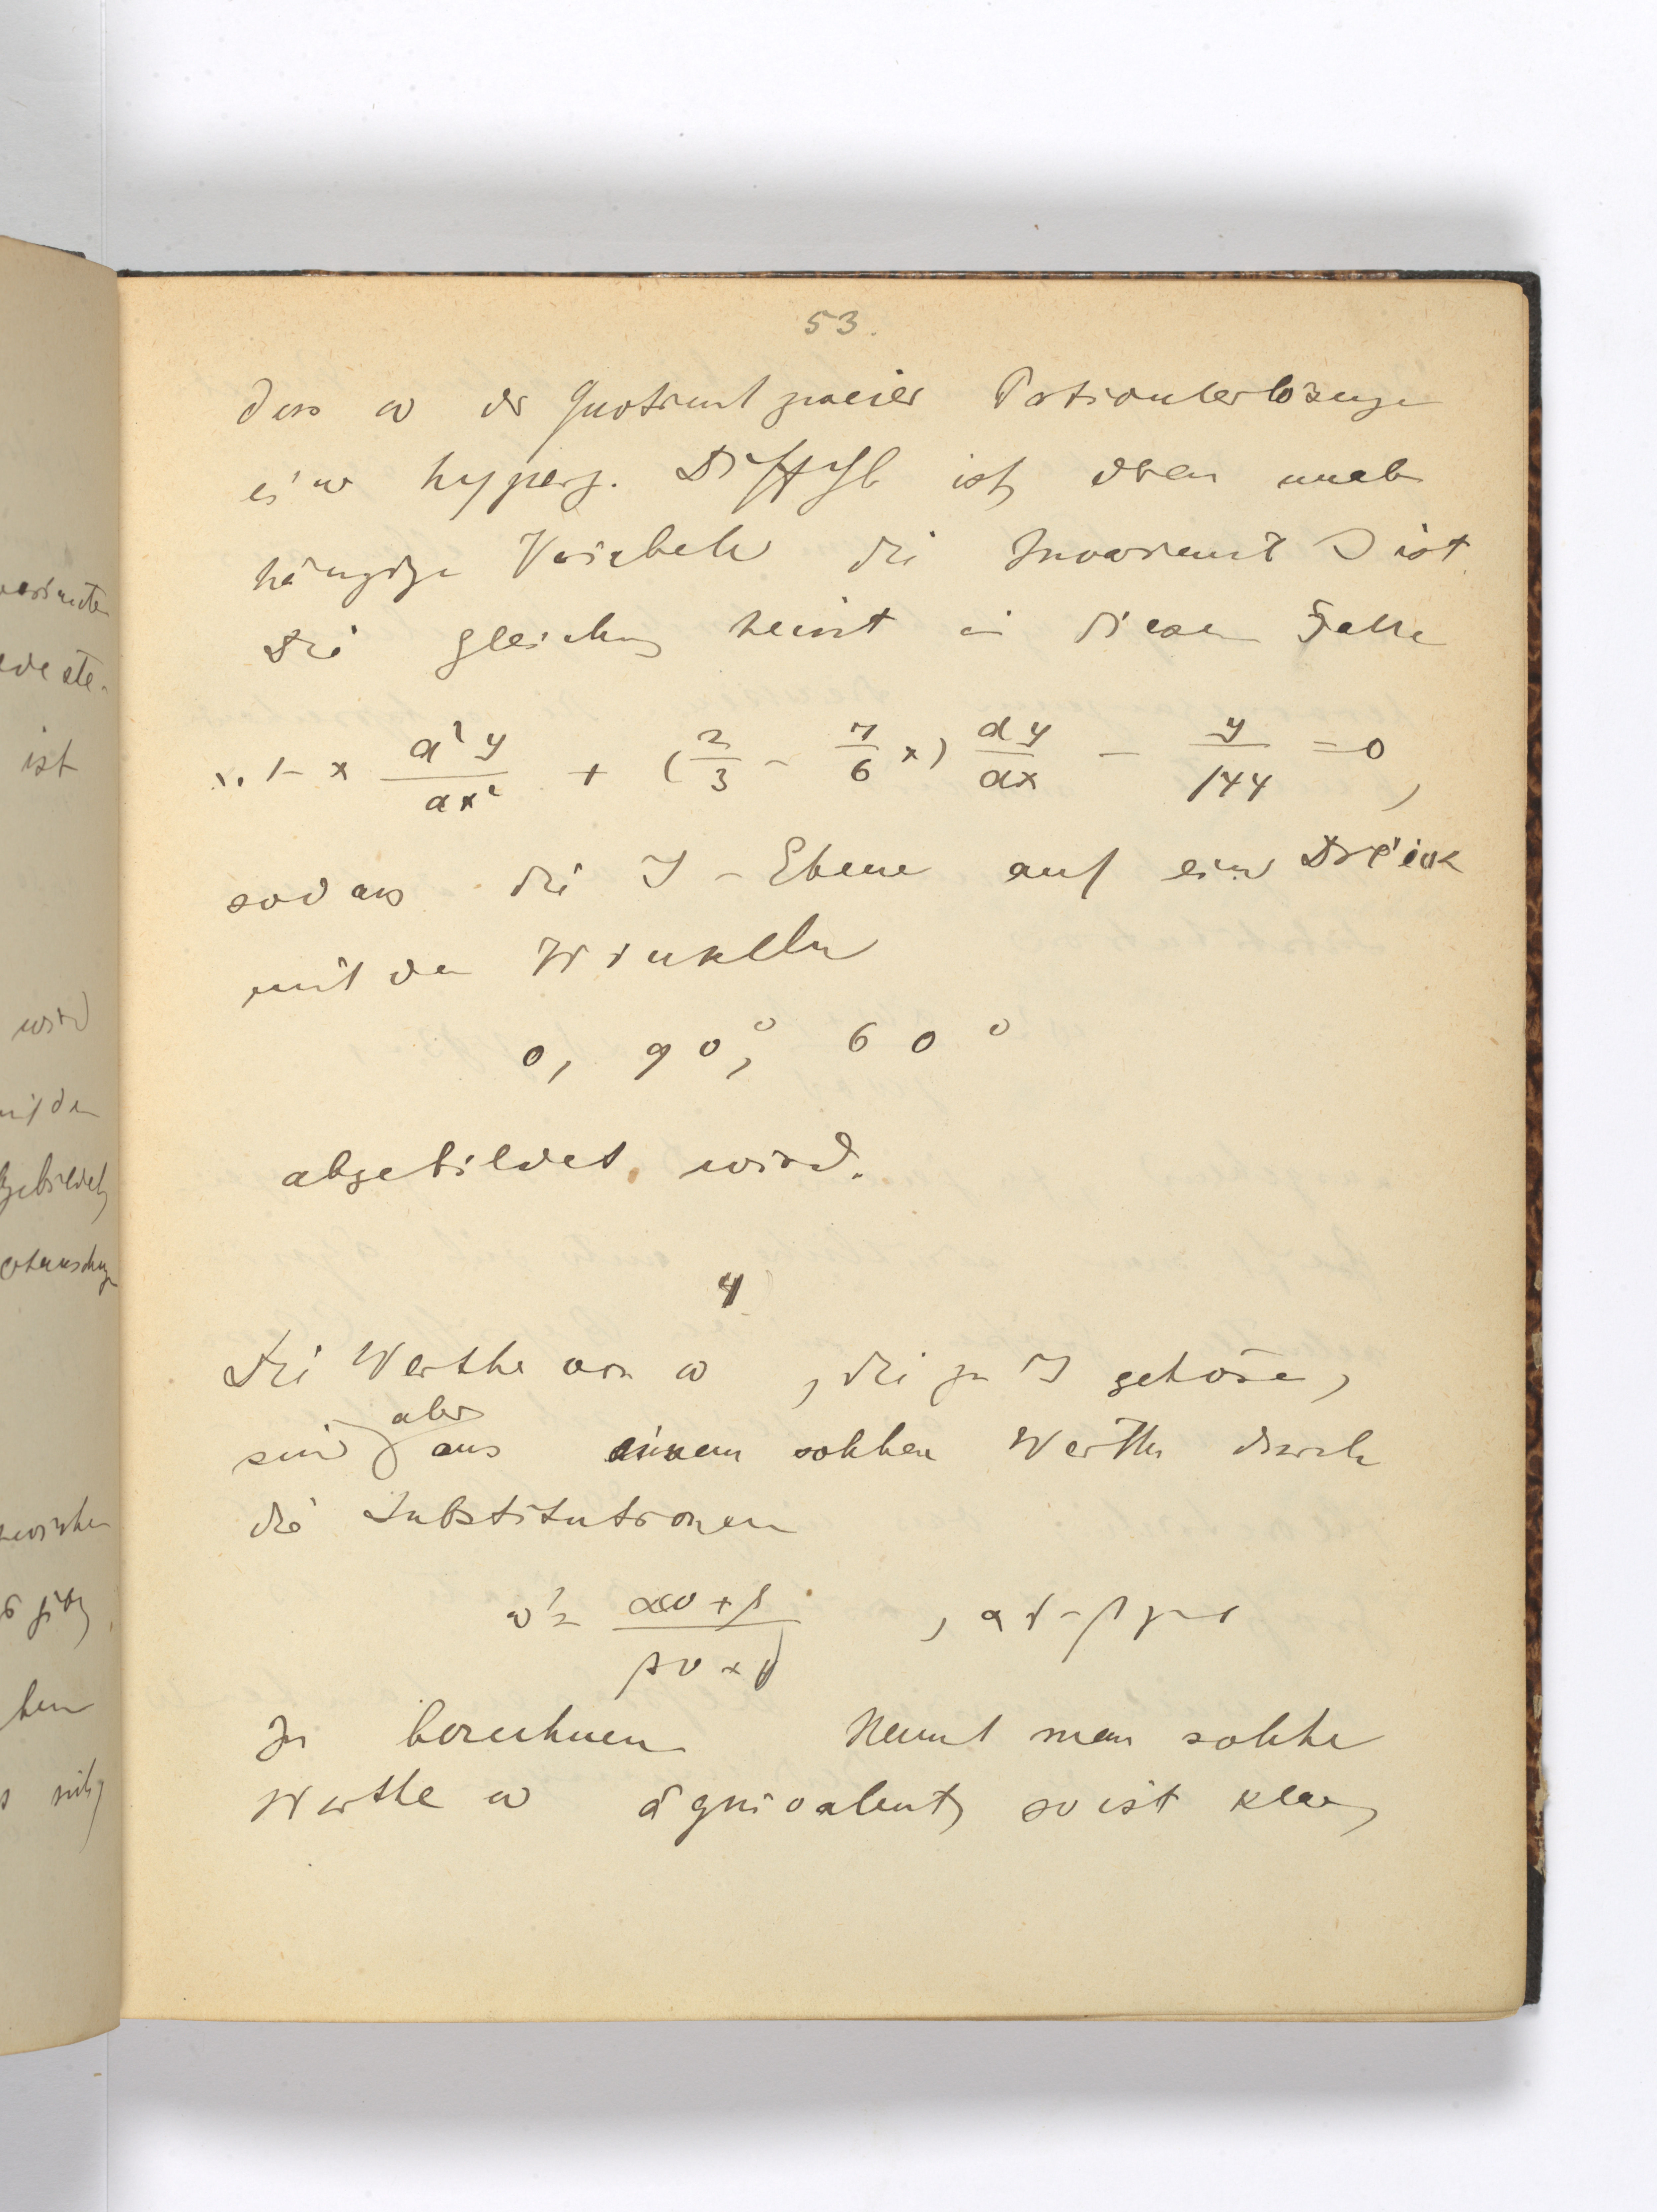 53.
dass ω der Quotient zweier Partikulerlösunge
einer hyperg. DiffGl ist, deren unab
hängige Variabele die Invariante J ist.
Die Gleichung heisst in diesem Falle
x. 1 - x d²y/dx² + (2/3 - 7/6 x) dy/dx - y/144 = 0,
sodass die J-Ebene auf ein Dreieck
mit den Winkeln
0, 90°, 60°
abgebildet wird.
4
Die Werthe von ω, die zu J gehören,
sind aber aus einem solchen Werthe durch
die Substitutionen
ω' = αω+β / γω+δ, αδ-βγ=1
zu berechnen Nennt man solche
Werthe ω äquivalent, so ist klar,
ist
wird
mit den